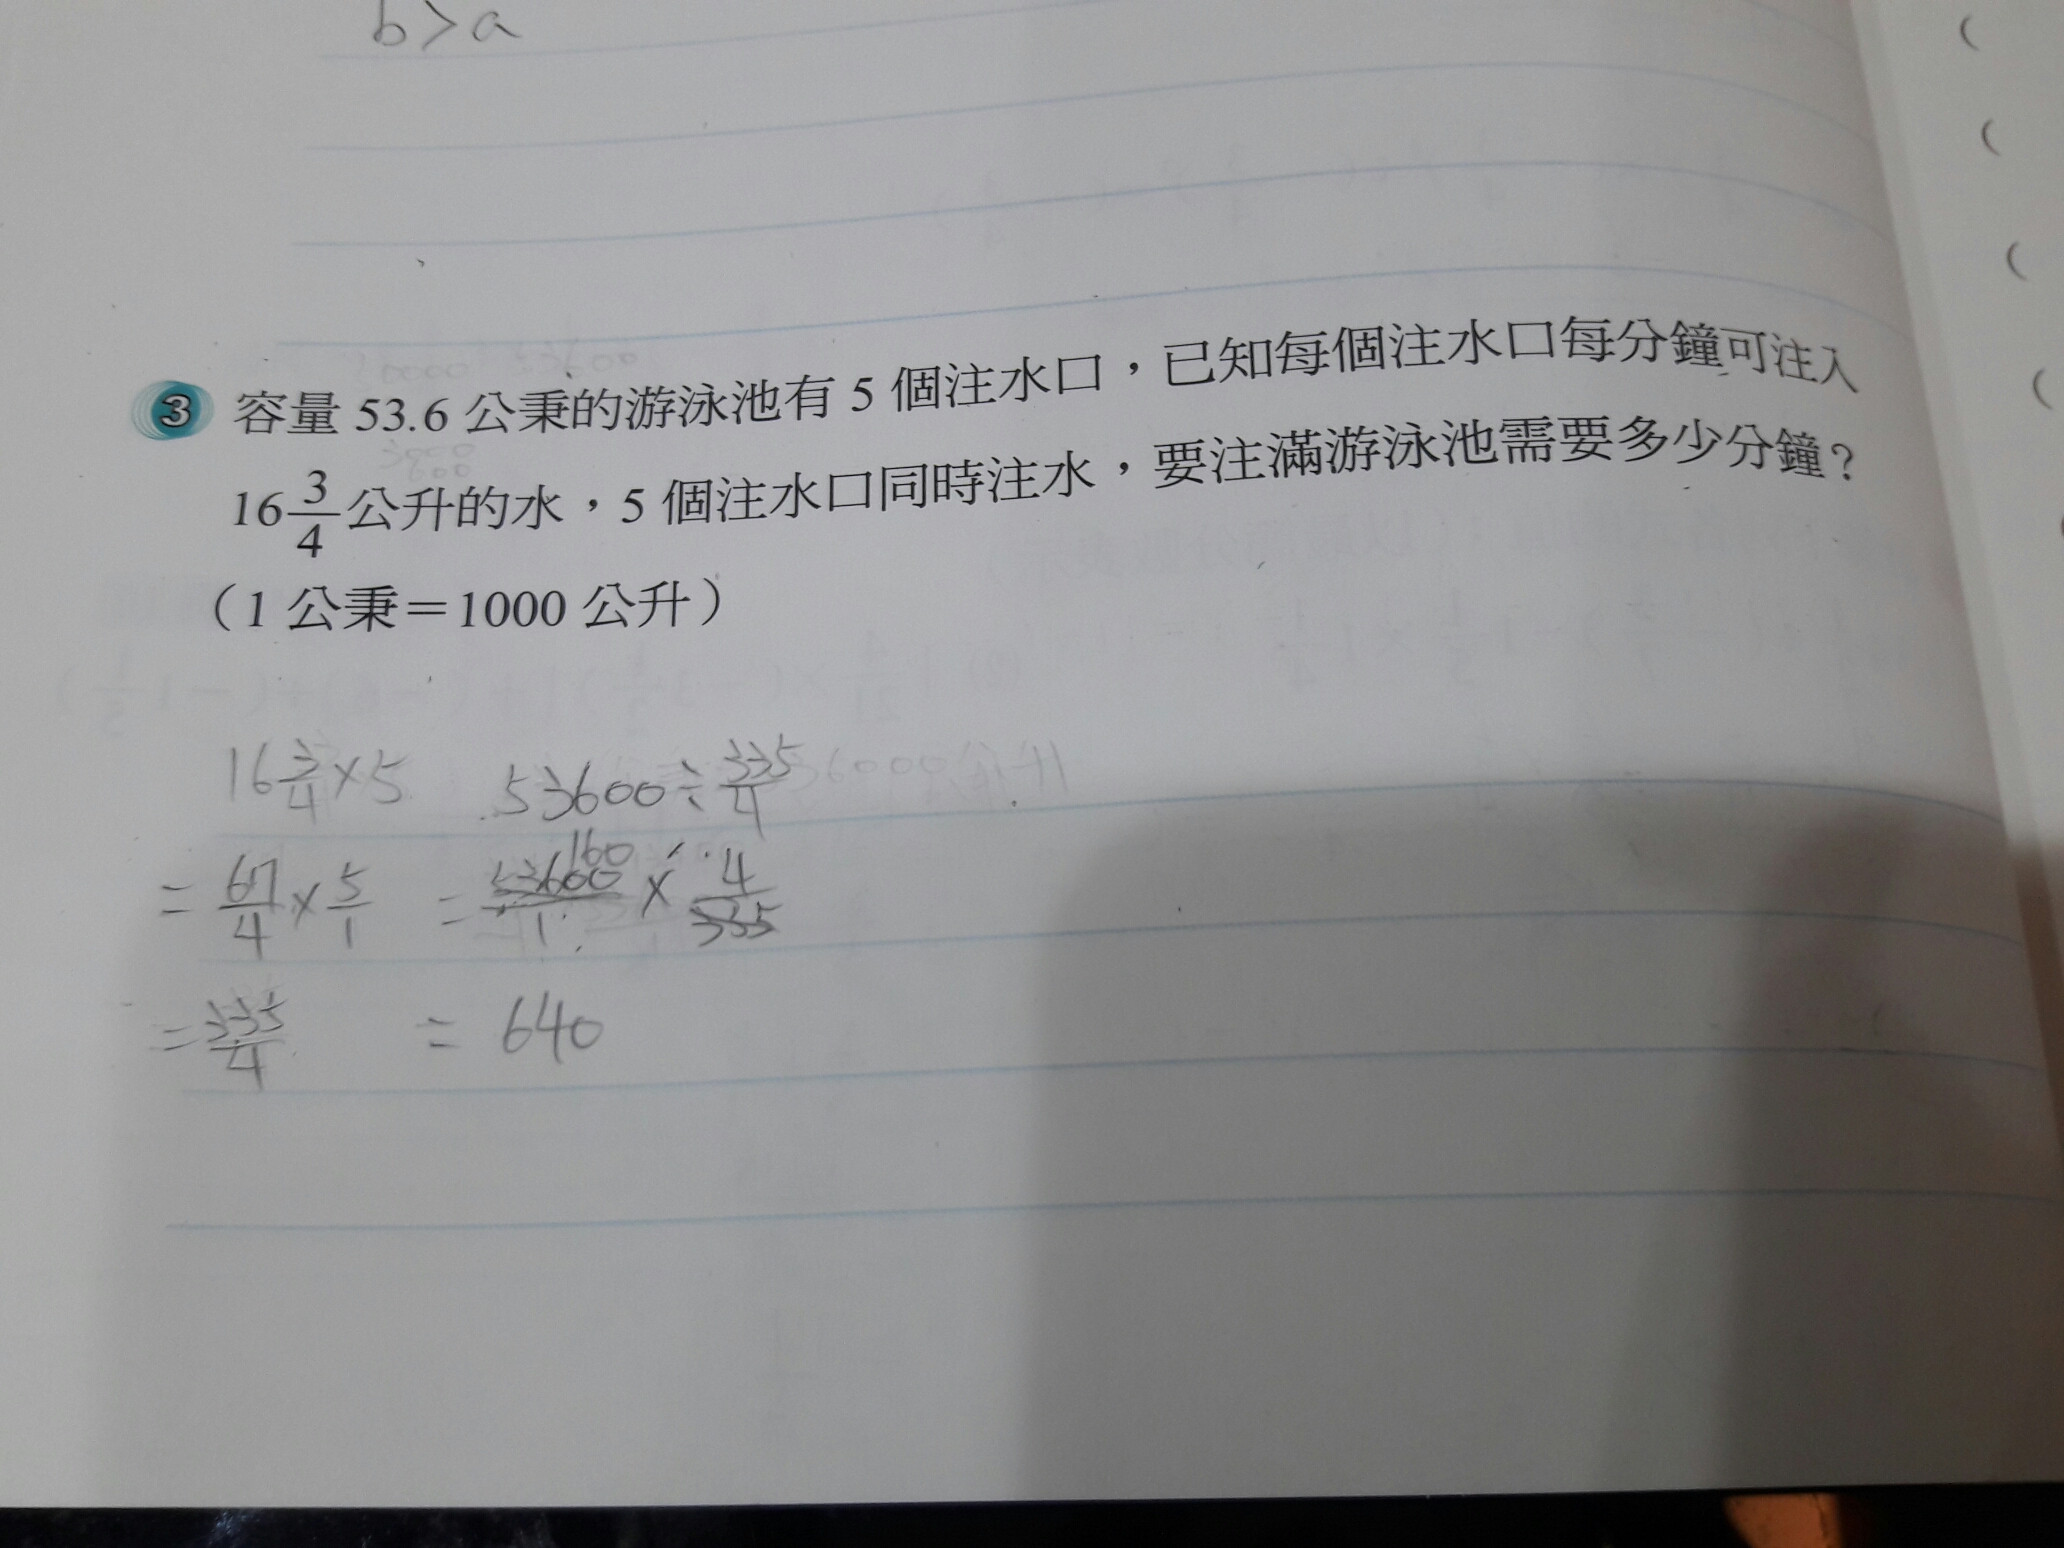 b>a
3 容量 53.6 公秉的游泳池有 5 個注水口，已知每個注水口每分鐘可注入
16 3/4 公升的水，5 個注水口同時注水，要注滿游泳池需要多少分鐘？
（1 公秉＝1000 公升）
16 3/4 × 5
= 67/4 × 5/1
= 335/4
53600 ÷ 335/4
160
= 53600/1 × 4/335
= 640